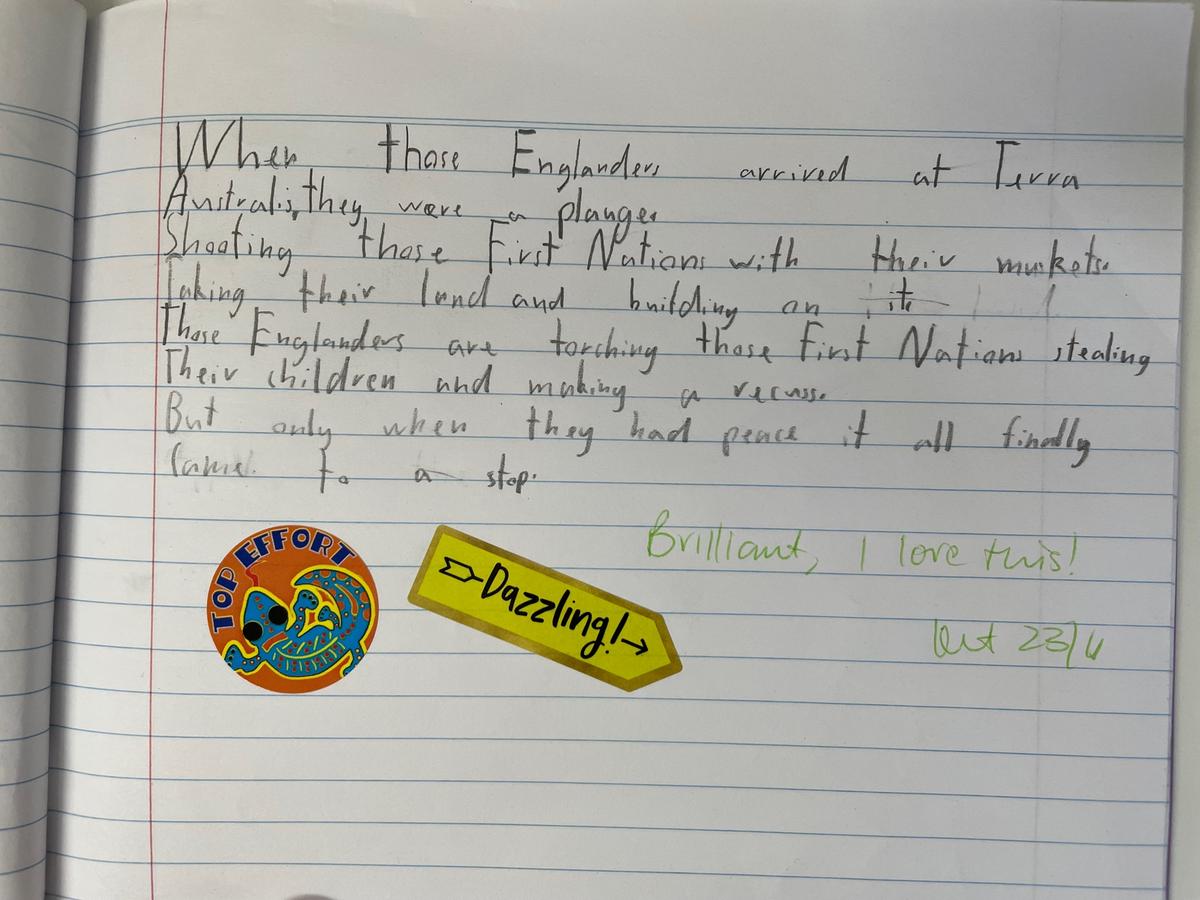 When those Englanders arrived at Terra
Australis, they were a plange.
Shooting those First Nations with their muskets.
Taking their land and building on it.
Those Englanders are torching those First Nations stealing
Their children and making a recuss.
But only when they had peace it all finally
Came to a stop.
TOP EFFORT
Dazzling!
Brilliant, I love this!
23/4